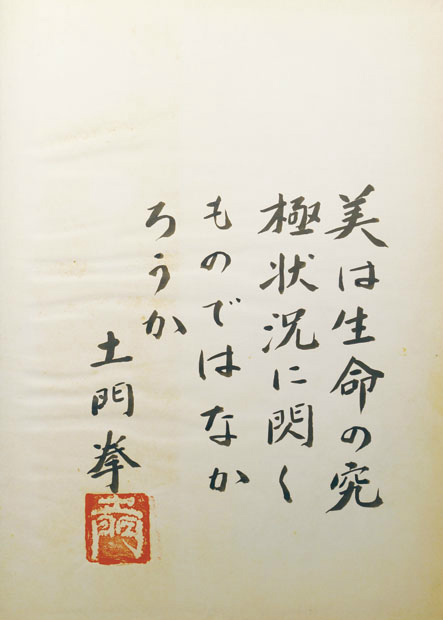 美は生命の究
極状況に閃く
ものではなか
ろうか
土門拳